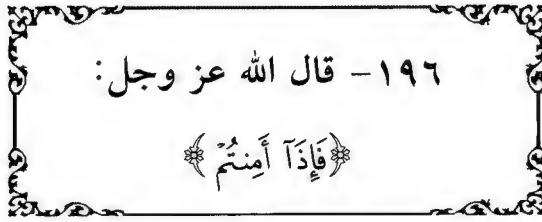 ١٩٦- قال الله عز وجل:
﴿فَإِذَآ أَمِنتُمْ﴾